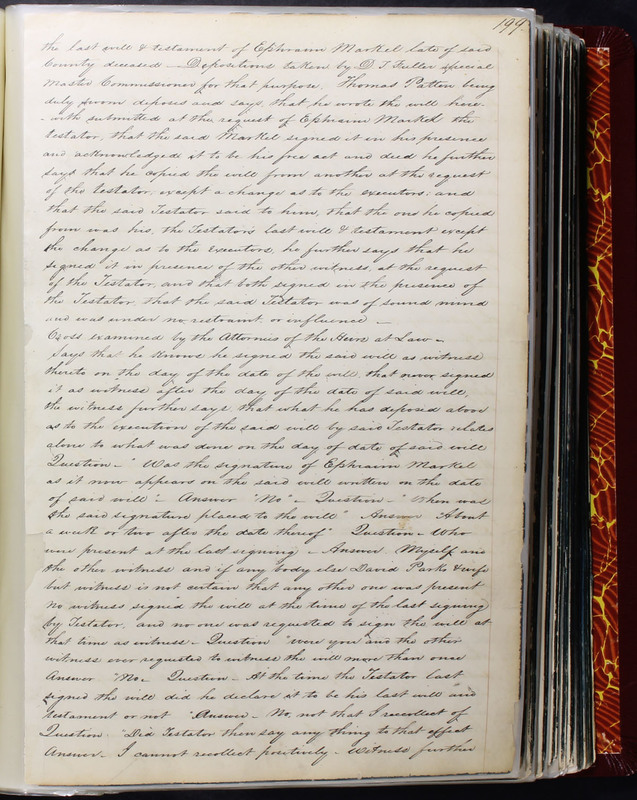 199
the last will & testament of Ephraim Markel late of said
County deceased — Depositions taken by D. T. Fuller special
Master Commissioner for that purpose, Thomas Patton being
duly sworn deposes and says, that he wrote the will here-
-with submitted at the request of Ephraim Markel the
testator, that the said Markel signed it in his presence
and acknowledged it to be his free act and deed he further
says that he copied the will from another at the request
of the testator, except a change as to the executors; and
that the said Testator said to him, that the one he copied
from was his, the Testator's last will & testament except
the change as to the Executors, he further says that he
signed it in presence of the other witness, at the request
of the Testator, and that both signed in the presence of
the Testator, that the said Testator was of sound mind
and was under no restraint or influence —
Cross examined by the Attornies of the Heirs at Law —
Says that he knows he signed the said will as witness
thereto on the day of the date of the will, that never signed
it as witness after the day of the date of said will,
the witness further says, that what he has deposed above
as to the execution of the said will by said Testator relates
alone to what was done on the day of date of said will
Question — " Was the signature of Ephraim Markel
as it now appears on the said will written on the date
of said will" — Answer "No" — Question — " When was
the said signature placed to the will" Answer "About
a week or two after the date thereof" Question — Who
were present at the last signing — Answer Myself and
the other witness and if any body else David Parks & wife
but witness is not certain that any other one was present
No witness signed the will at the time of the last signing
by Testator, and no one was requested to sign the will at
that time as witness — Question "Were you and the other
witness ever requested to witness the will more than once
Answer "No — Question — At the time the Testator last
signed the will did he declare it to be his last will and
testament or not" Answer — No, not that I recollect of
Question "Did Testator then say any thing to that effect
Answer — I cannot recollect positively — Witness further